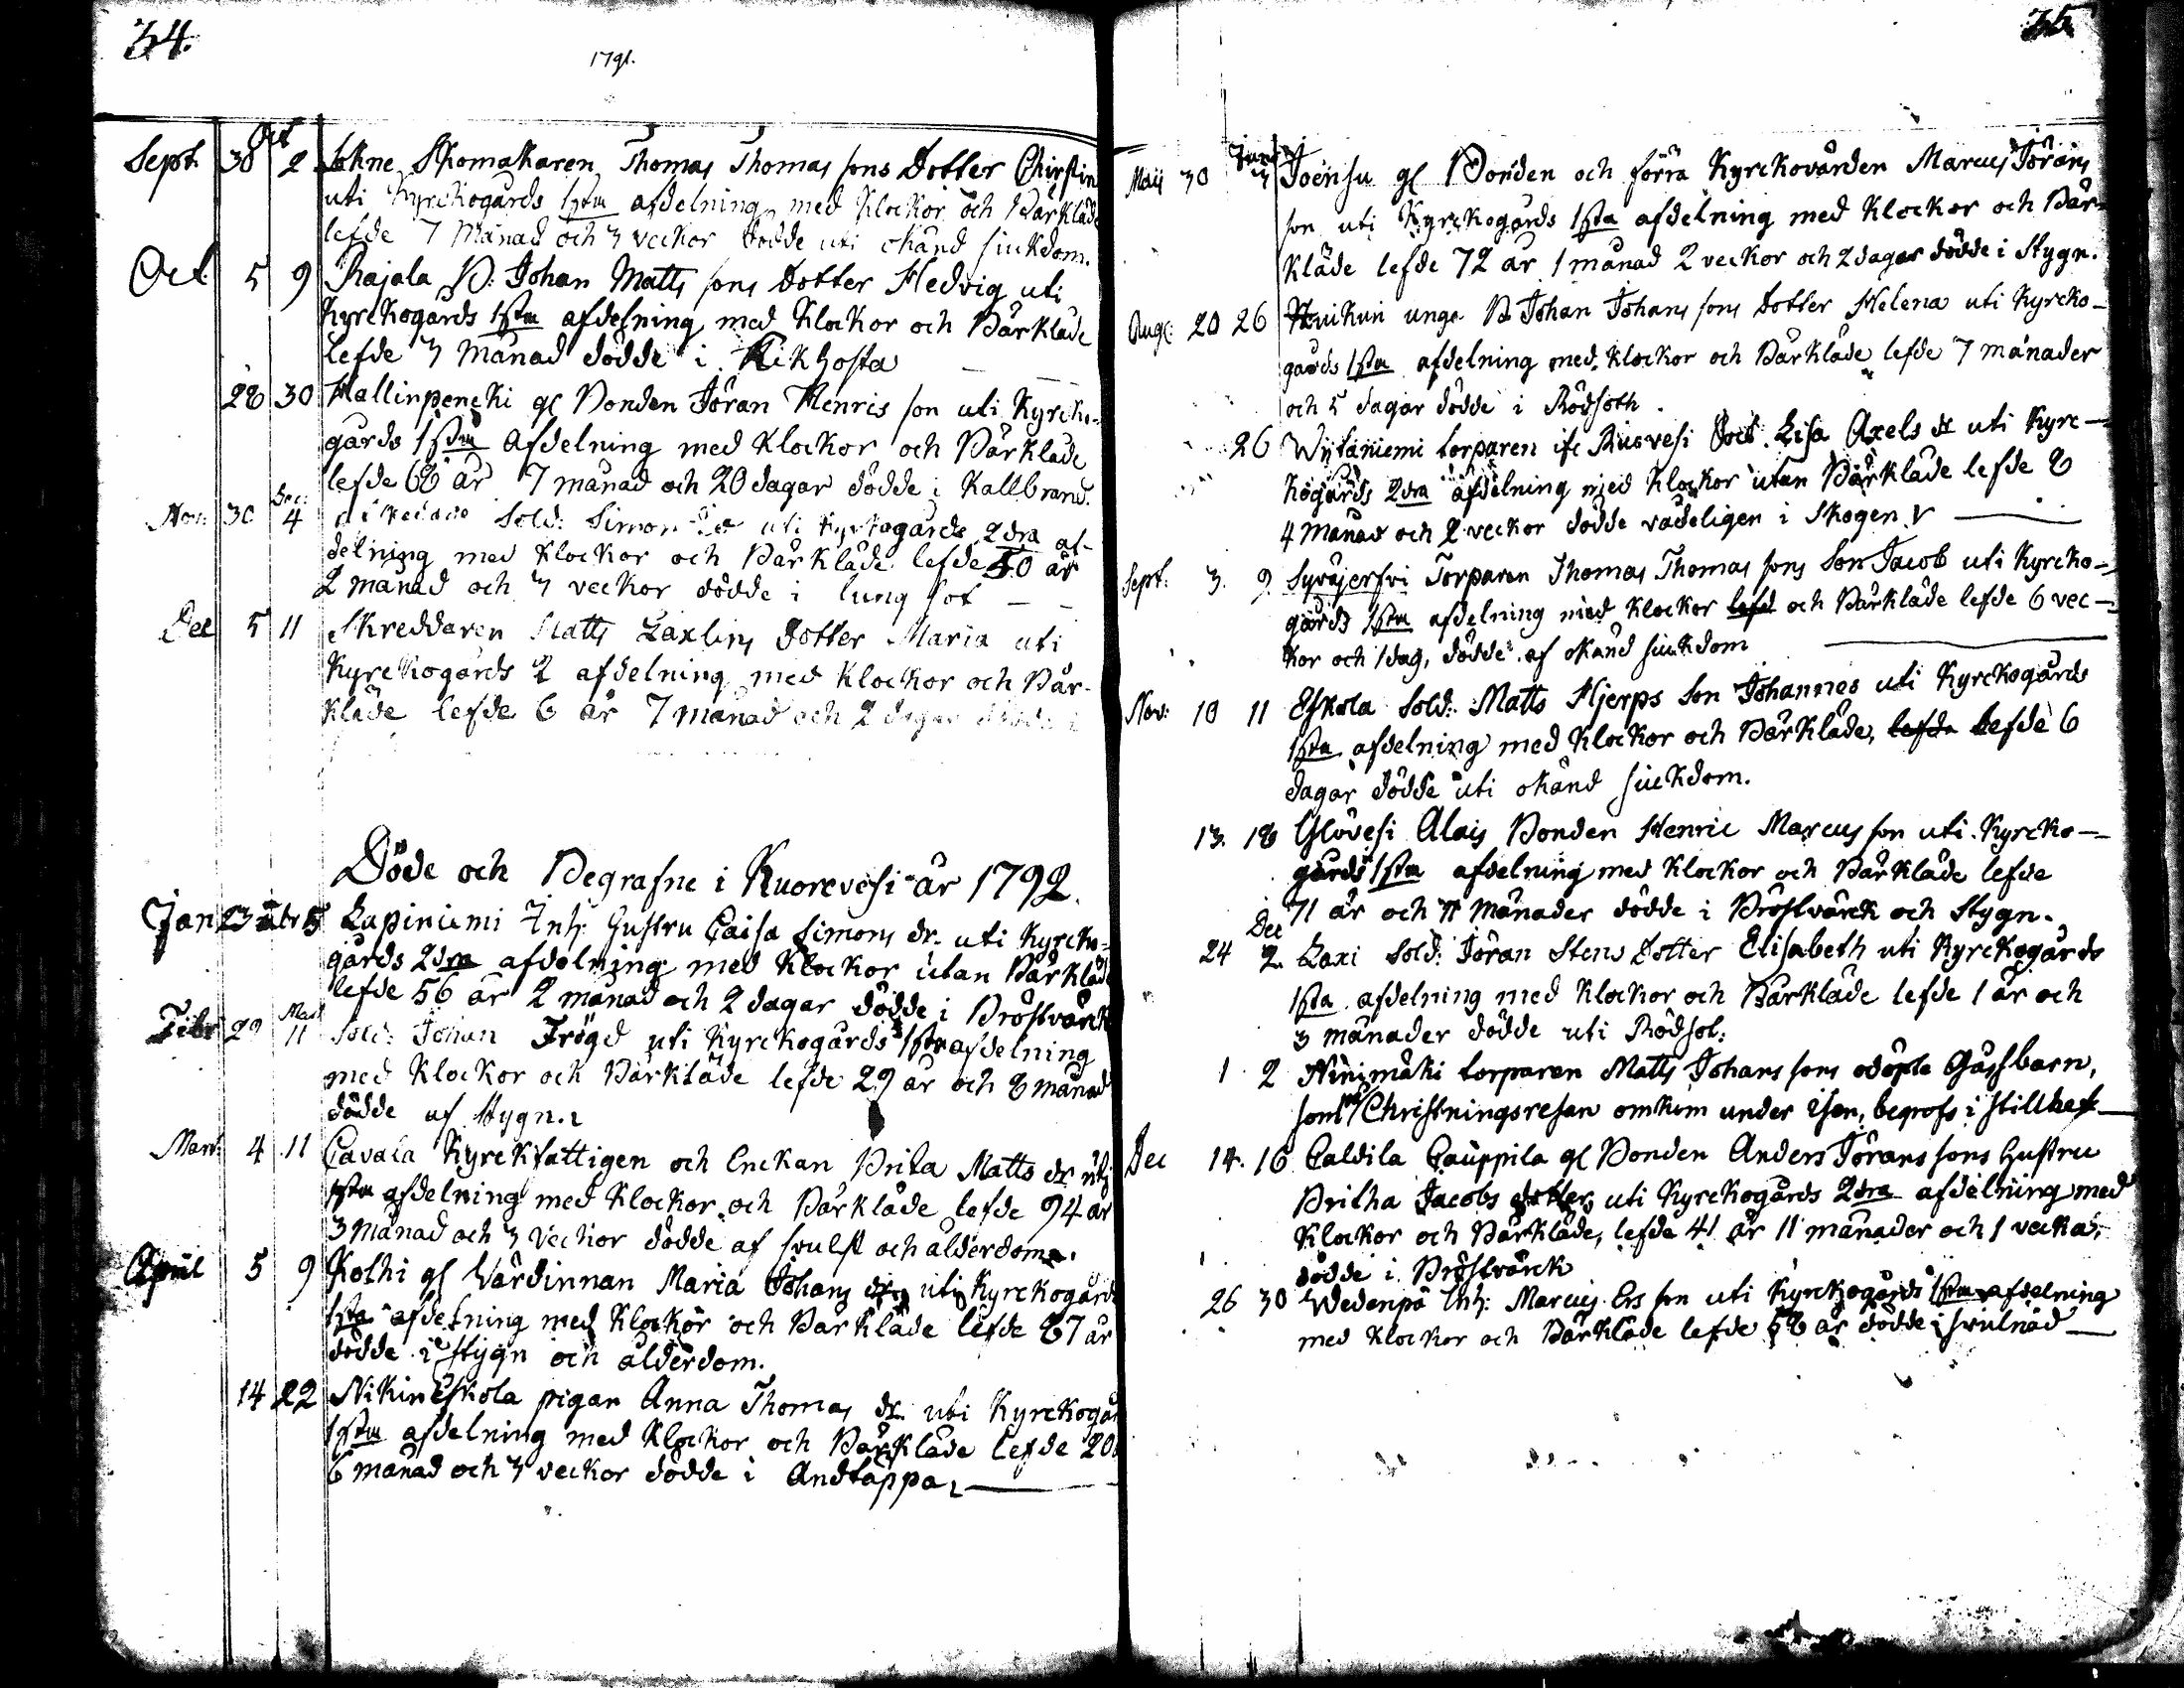 34.
1791.
Sept. 30 Oct 2 Jokne Skomakaren Thomas Thomas sons Dotter Chirstin
uti Kyrckogårds 1sta afdelning med Klockor och Bårkläde
lefde 7 Månad och 3 veckor dödde uti okänd siukdom.
Oct 5 9 Rajala B: Johan Matts sons Dotter Hedvig uti
Kyrckogårds 1sta afdelning med Klockor och Bårkläde
lefde 3 Månad dödde i Kikhosta
28 30 Hallinpencki gl Bonden Jöran Henris son uti Kyrcko-
gårds 1sta Afdelning med Klockor och Bårkläde
lefde 68 år 7 månad och 20 dagar dödde i Kallbrand.
Nov: 30 Dec: 4 Sold: Simon uti Kyrkogårds 2dra af-
delning med Klockor och Bårkläde lefde 50 år
2 månad och 3 veckor dödde i lung sot
Dec 5 11 Skreddaren Matts Laxlins Dotter Maria uti
Kyrckogårds 2 afdelning med Klockor och Bår-
kläde lefde 6 år 7 månad och 2 dagar dödde i
Döde och Begrafne i Kuorevesi år 1792.
Jan 23 Febr 5 Lapiniemi Inh: Hustru Caisa Simons dr. uti Kyrcko-
gårds 2dra afdelning med Klockor utan Bårkläde
lefde 56 år 2 månad och 2 dagar dödde i Bröstvärck
Febr 29 Mart 11 Sold: Johan Frögd uti Kyrckogårds 1sta afdelning
med Klockor och Bårkläde lefde 29 år och 8 månad
dödde af Stygn.
Mart: 4 11 Cavala Kyrckfattigen och Enckan Brita Matts dr uti
1sta afdelning med Klockor och Bårkläde lefde 94 år
3 Månad och 3 Veckor dödde af svulst och ålderdom.
April 5 9 Kothi gl Värdinnan Maria Johans dr uti Kyrckogårds
1sta afdelning med Klockor och Bårkläde lefde 87 år
dödde i stygn och ålderdom.
14 22 Nikin Eskola pigan Anna Thomas dr. uti Kyrckogår
1sta afdelning med Klockor och Bårkläde lefde 20
6 månad och 3 veckor dödde i Andtäppa
35
Maij 30 Juni 3 Joensu gl Bonden och förra Kyrckovärden Marcus Jörans
son uti Kyrckogårds 1sta afdelning med Klockor och Bår-
kläde lefde 72 år 1 månad 2 veckor och 2 dagar dödde i Stygn.
Aug: 20 26 unge B Johan Johans sons Dotter Helena uti Kyrcko-
gårds 1sta afdelning med klockor och Bårkläde lefde 7 månader
och 5 dagar dödde i Rödsoth.
26 Wytaniemi torparen Lisa Axels dr uti Kyrc-
kogårds 2dra afdelning med Klockor utan Bårkläde lefde 8
4 Månad och 2 veckor dödde vådeligen i Skogen.
Sept: 3. 9. Syväjerfvi Torparen Thomas Thomas sons Son Jacob uti Kyrcko-
gårds 1sta afdelning med Klockor lefd och Bårkläde lefde 6 vec-
kor och 1 dag, dödde af okänd siukdom
Nov: 10 11 Eskola Sold: Matts Hjerps Son Johannes uti Kyrckogårds
1sta afdelning med Klockor och Bårkläde, lefde lefde 6
dagar dödde uti okänd siukdom.
13. 18 Alais Bonden Henric Marcus son uti Kyrcko-
gårds 1sta afdelning med Klockor och Bårkläde lefde
71 år och Månader dödde i Bröstvärck och Stygn.
24 Dec 2. Laxi Sold: Jöran Stens Dotter Elisabeth uti Kyrckogårds
1sta afdelning med Klockor och Bårkläde lefde 1 år och
3 månader dödde uti Rödsot:
1 2 Ninimäki torparen Matts Johans sons odöpta Gåssbarn,
som på Christningsresan omkom under isen, begrofs i stillhet
Dec 14. 16 Caldila Cauppila gl Bonden Anders Jörans sons Hustru
Britha Jacobs dotter uti Kyrckogårds 2dra afdelning med
Klockor och Bårkläde, lefde 41 år 11 månader och 1 vecka,
dödde i Bröstvärck
26 30 Wedenpä Inh: Marcus Ers son uti Kyrckogårds 1sta afdelning
med Klockor och Bårkläde lefde 58 år dödde i svulnad